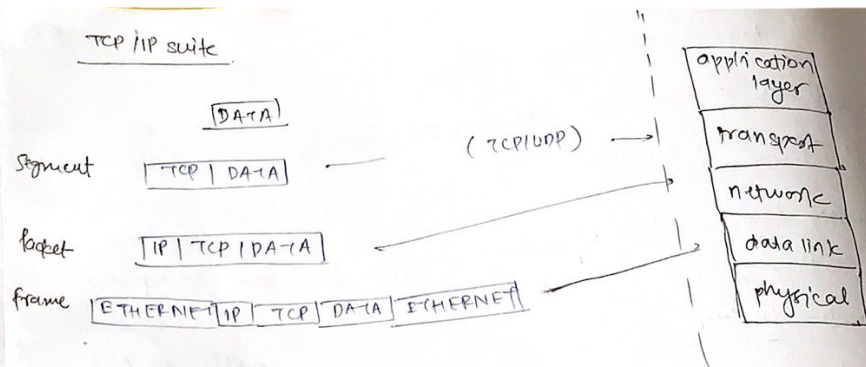 TCP/IP suite
DATA
Segment TCP | DATA (TCP/UDP)
Packet IP | TCP | DATA
frame ETHERNET | IP | TCP | DATA | ETHERNET
application
layer
transport
network
data link
physical